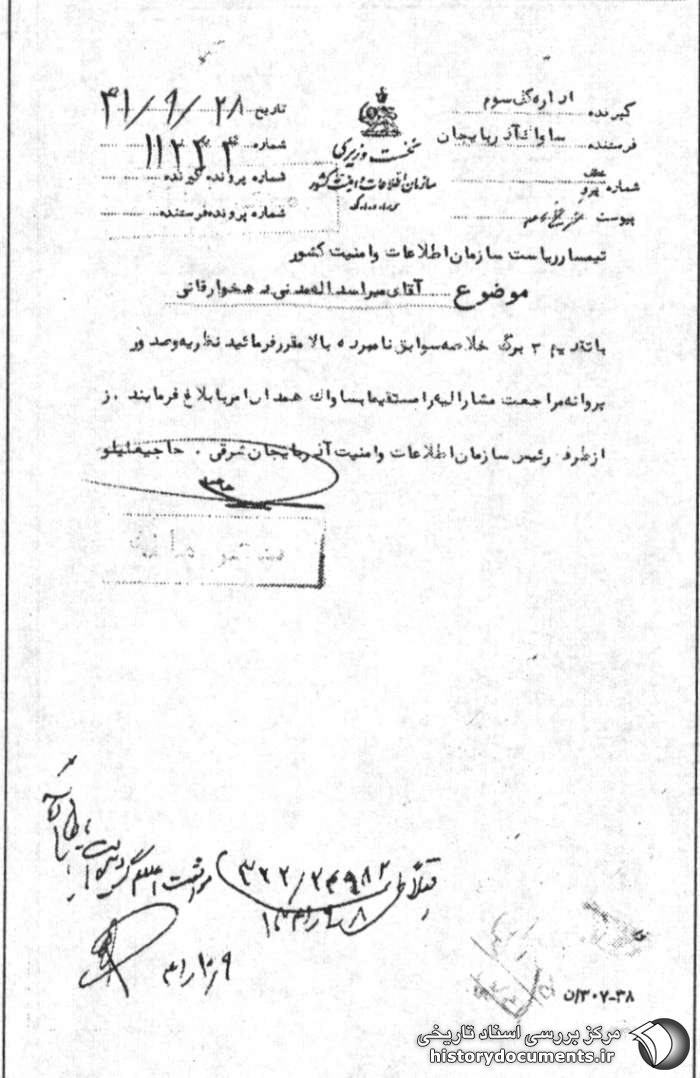 گیرنده اداره کل سوم
فرستنده ساواک آذربایجان
شماره پیرو
پیوست
نخست وزیری
سازمان اطلاعات و امنیت کشور
س.ا.و.ا.ک
تاریخ ۴۱/۹/۲۸
شماره ۱۱۲۳۴
شماره پرونده گیرنده
شماره پرونده فرستنده
تیمسار ریاست سازمان اطلاعات و امنیت کشور
موضوع آقای میراسداله مدنی دهخوارقانی
با تقدیم ۲ برگ خلاصه سوابق نامبرده بالا مقرر فرمائید نظاریه وصدور
پروانه مراجعت مشارالیه را مستقیما بساواک همدان امر با بلاغ فرمایند . ز
از طرف رئیس سازمان اطلاعات و امنیت آذربایجان شرقی . حاجیعلیلو
قبلا طی
۳۲۲/
۴۱/۱۰/۹
۳۰۷-۳۸/ن
مرکز بررسی اسناد تاریخی
historydocuments.ir